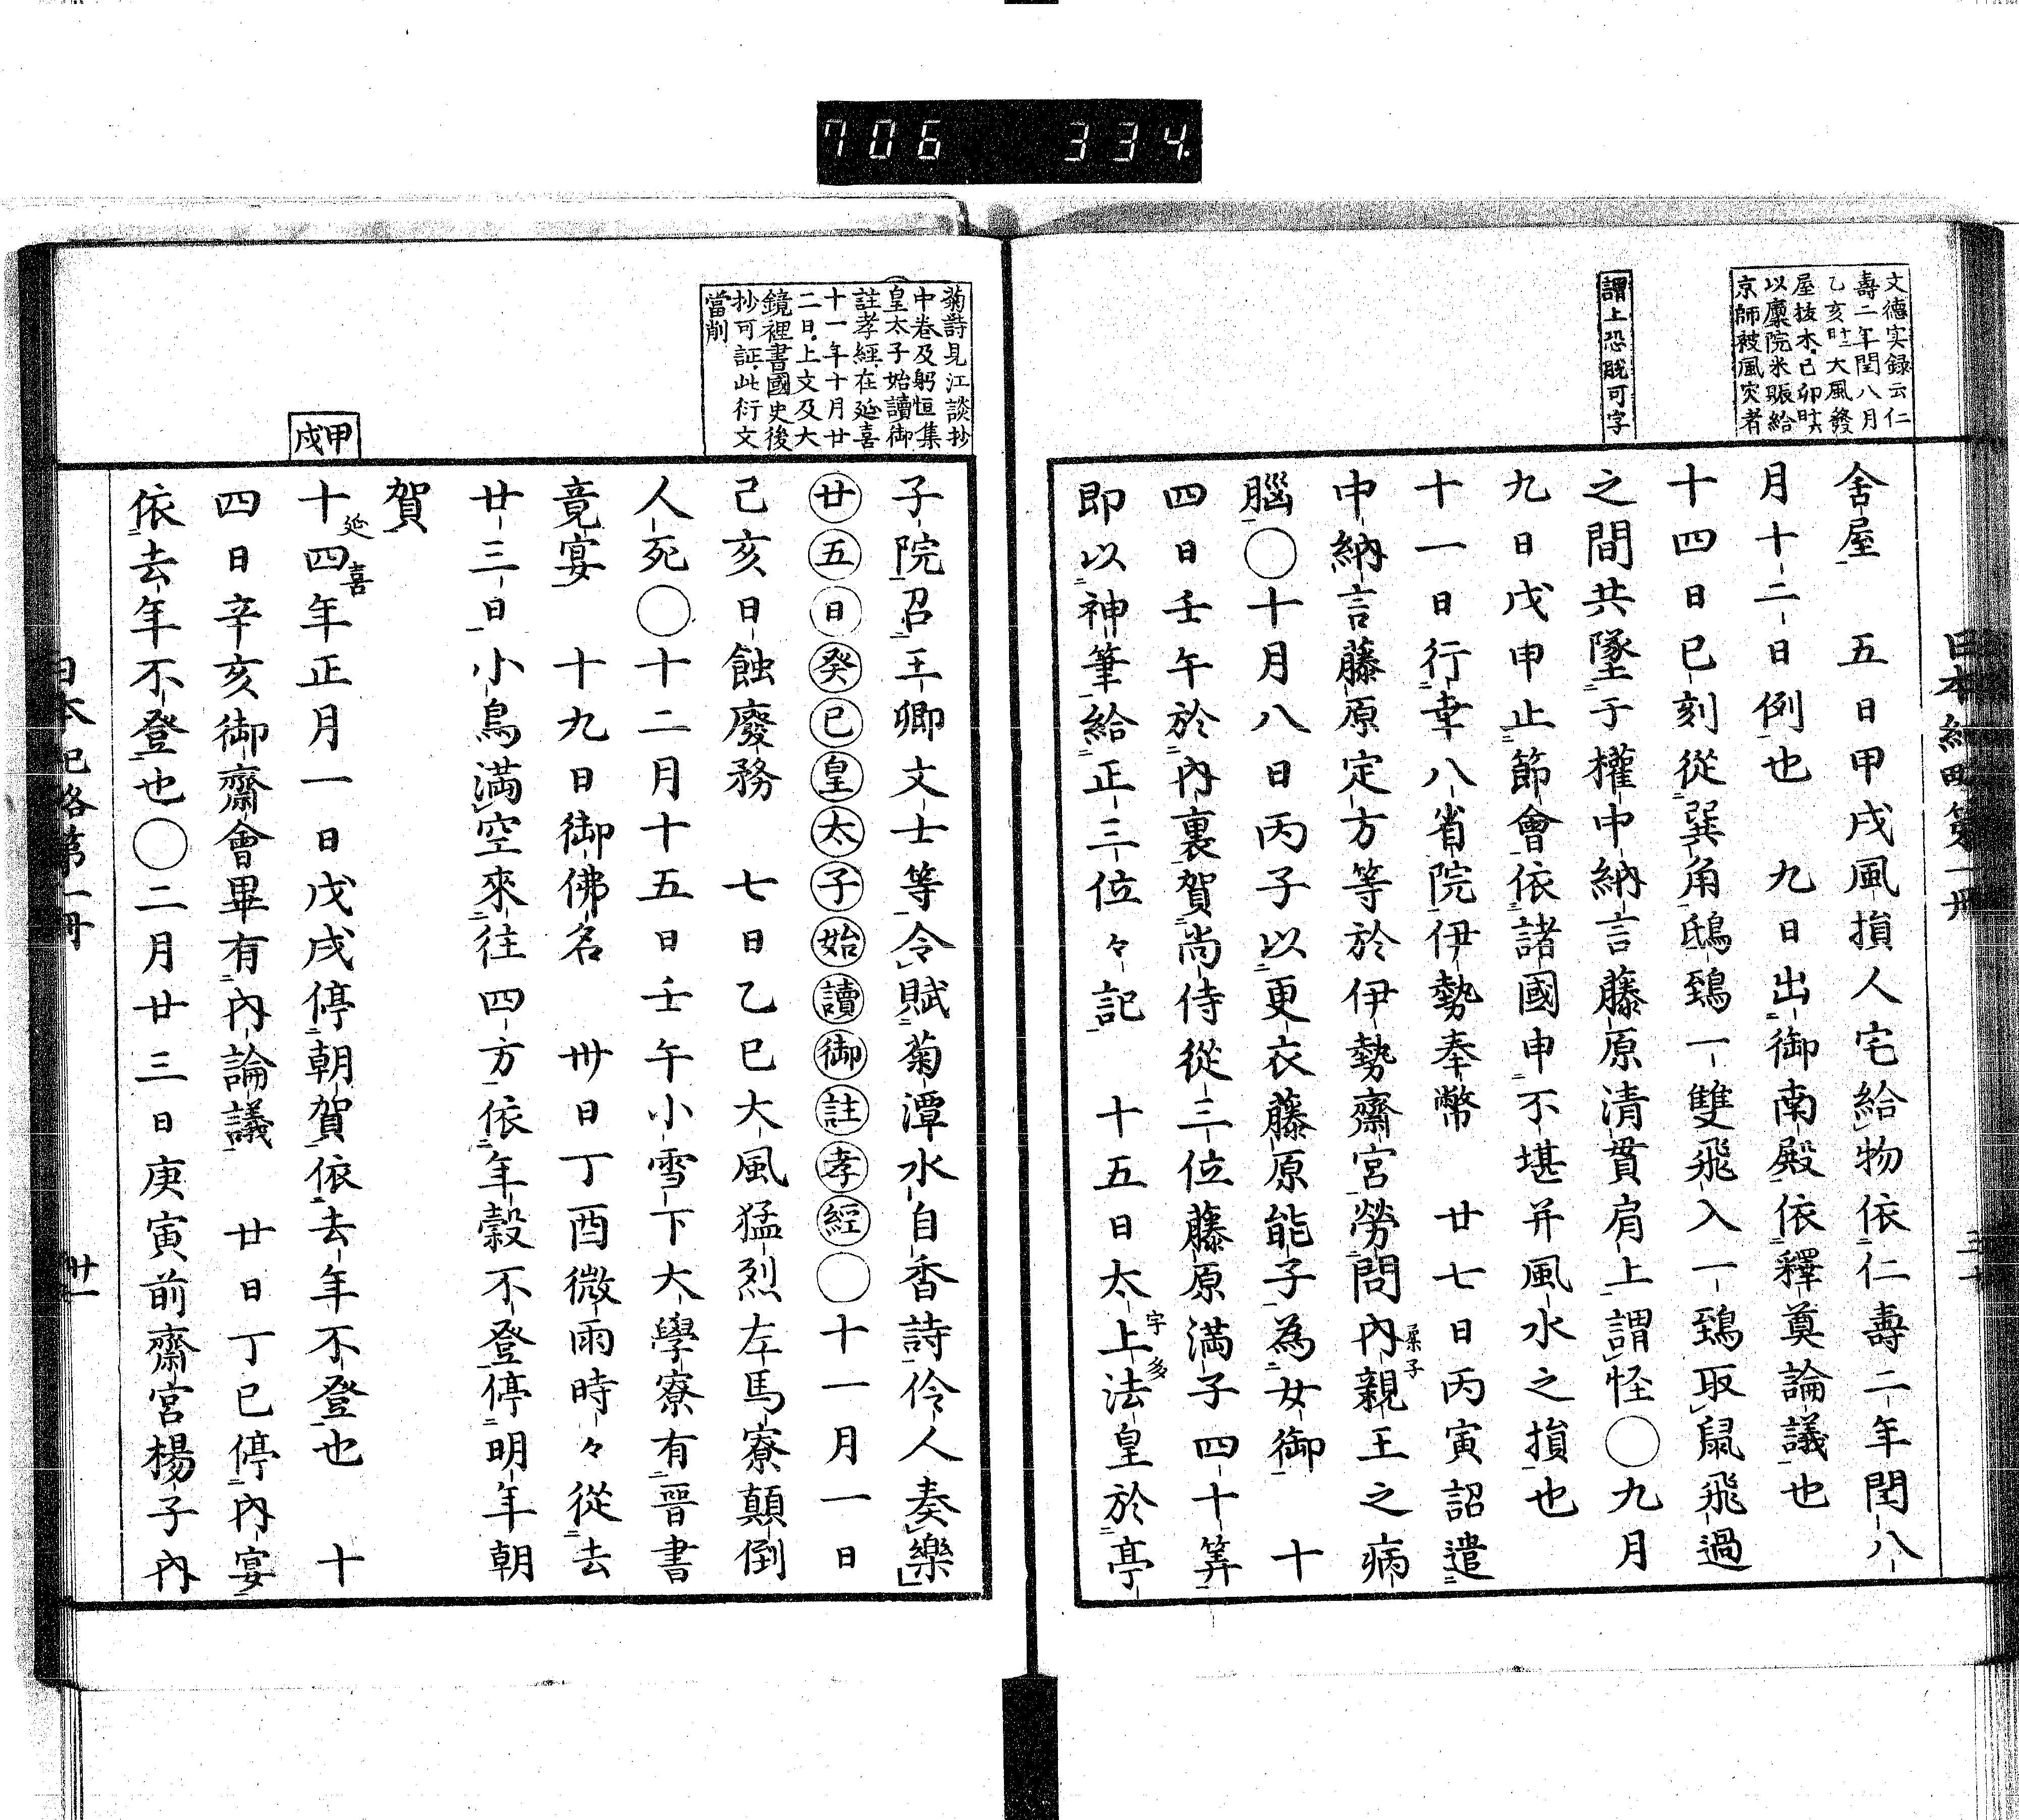 706 334.
文德实録云仁
壽二年閏八月
乙亥大風發
屋抜木己卯
以廩院米賑給
京師被風灾者
謂上恐脱可字
日本紀略第一冊
三十
舍屋 五日甲戌風損人宅給物依仁壽二年閏八
月十二日例也 九日出御南殿依釋奠論議也
十四日巳刻從巽角鴟鵄一雙飛入一鵄取鼠飛過
之間共墜于權中納言藤原清貫肩上謂怪〇九月
九日戊申止節會依諸國申不堪并風水之損也
十一日行幸八省院伊勢奉幣 廿七日丙寅詔遣
中納言藤原定方等於伊勢齋宮勞問内親王之病
柔子
腦〇十月八日丙子以更衣藤原能子為女御 十
四日壬午於内裏賀尚侍從三位藤原満子四十筭
即以神筆給正三位々記 十五日太上法皇於亭
宇多
菊詩見江談抄
中卷及躬恒集
皇太子始讀御
註孝經在延喜
十一年十月廿
二日上文及大
鏡裡書國史後
抄可証此衍文
當削
子院召王卿文士等令賦菊潭水自香詩伶人奏樂
廿五日癸巳皇太子始讀御註孝經〇十一月一日
己亥日蝕廢務 七日乙巳大風猛烈左馬寮顛倒
人死〇十二月十五日壬午小雪下大學寮有晉書
竟宴 十九日御佛名 卅日丁酉微雨時々從去
廿三日小鳥満空來往四方依年穀不登停明年朝
賀
甲戌
十四年正月一日戊戌停朝賀依去年不登也 十
延喜
四日辛亥御齋會畢有内論議 廿日丁巳停内宴
依去年不登也〇二月廿三日庚寅前齋宮楊子内
日本紀略第一冊
卅一